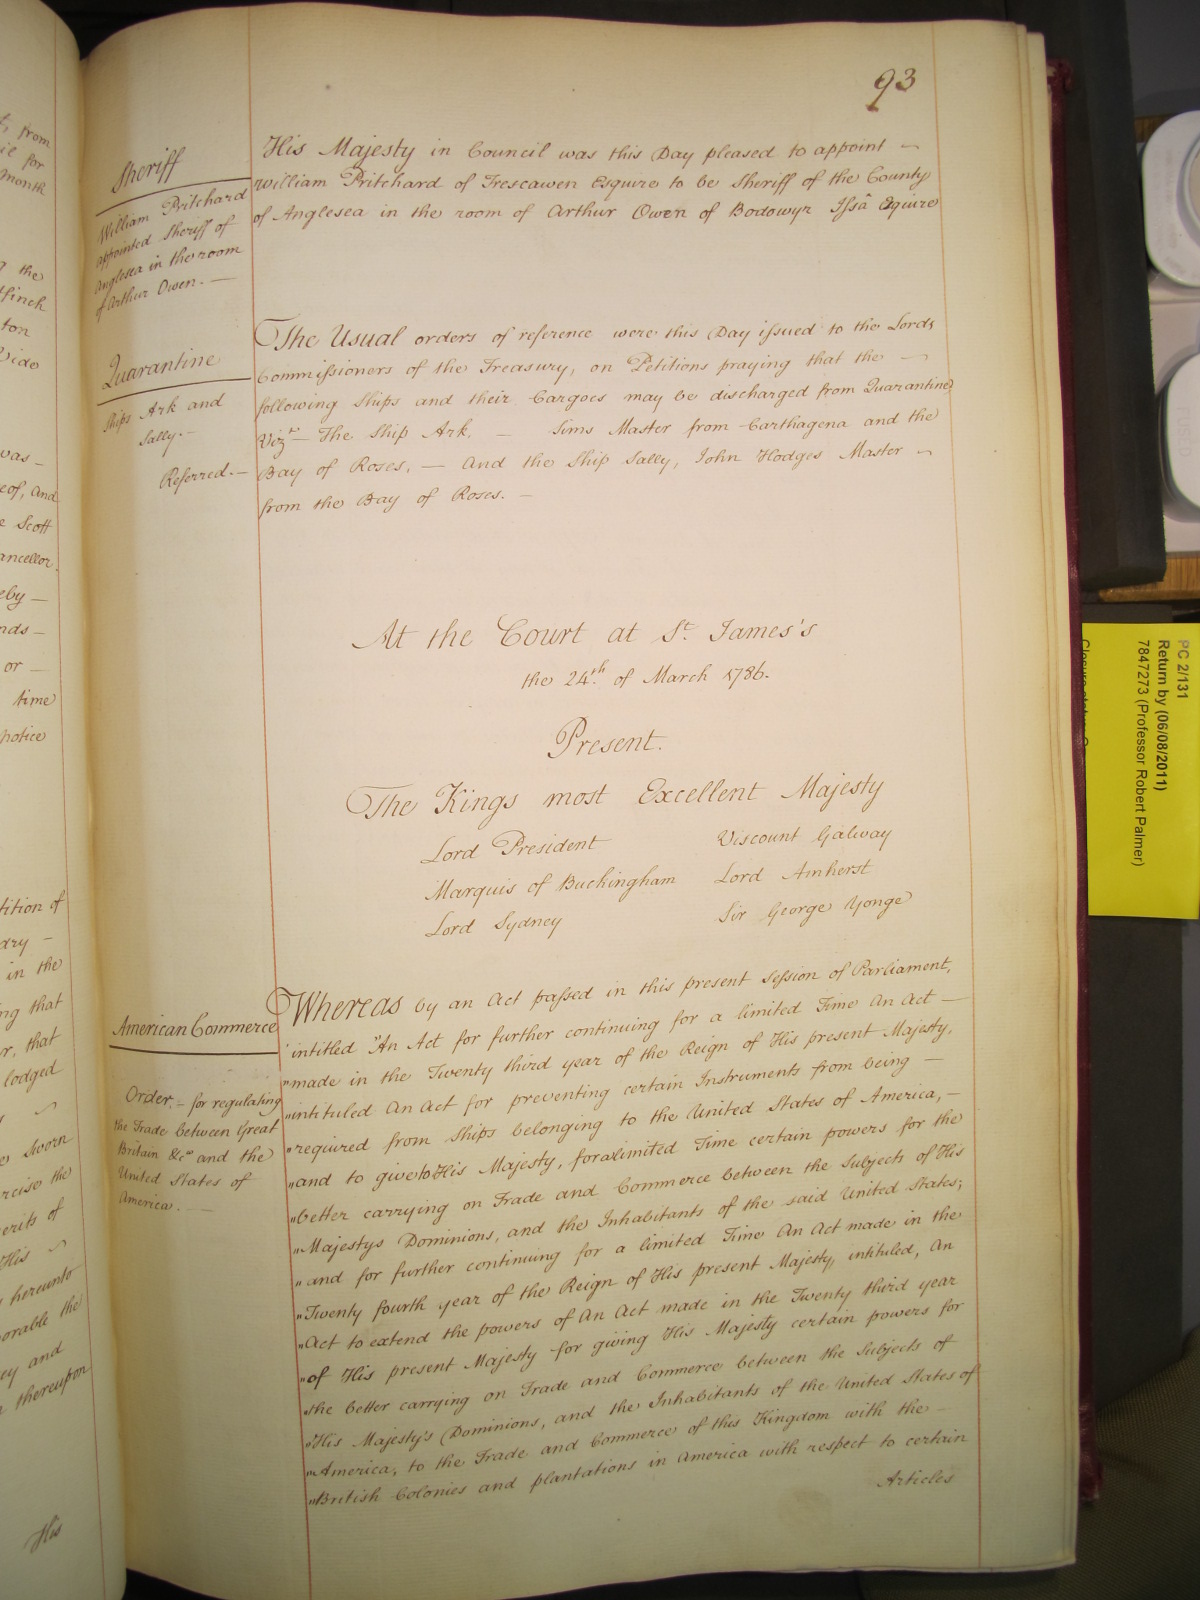 93
Sheriff
William Pritchard
appointed Sheriff of
Anglesea in the room
of Arthur Owen. —
His Majesty in Council was this Day pleased to appoint —
William Pritchard of Trescawen Esquire to be Sheriff of the County
of Anglesea in the room of Arthur Owen of Bodowyr Issâ Esquire
Quarantine
Ships Ark and
Sally. —
Referred. —
The Usual orders of reference were this Day issued to the Lords
Commissioners of the Treasury, on Petitions praying that the —
following Ships and their Cargoes may be discharged from Quarantine
Vizt. — The Ship Ark, — Sims Master from Carthagena and the
Bay of Roses, — And the Ship Sally, John Hodges Master —
from the Bay of Roses. —
At the Court at St. James's
the 24th. of March 1786.
Present.
The Kings most Excellent Majesty
Lord President
Viscount Galway
Marquis of Buckingham
Lord Amherst
Lord Sydney
Sir George Yonge
American Commerce
Order. — for regulating
the Trade between Great
Britain &ca and the
United States of
America. —
Whereas by an Act passed in this present Session of Parliament,
intitled "An Act for further continuing for a limited Time An Act —
"made in the Twenty third year of the Reign of His present Majesty,
"intituled An Act for preventing certain Instruments from being —
"required from Ships belonging to the United States of America, —
"and to give to His Majesty, for a limited Time certain powers for the
"better carrying on Trade and Commerce between the Subjects of His
"Majestys Dominions, and the Inhabitants of the said United States;
"and for further continuing for a limited Time An Act made in the
"Twenty fourth year of the Reign of His present Majesty, intituled, An
"Act to extend the powers of An Act made in the Twenty third year
"of His present Majesty for giving His Majesty certain powers for
"the better carrying on Trade and Commerce between the Subjects of
"His Majesty's Dominions, and the Inhabitants of the United States of
"America, to the Trade and Commerce of this Kingdom with the —
"British Colonies and plantations in America with respect to certain
Articles
PC 2/131
Return by (06/08/2011)
7847273 (Professor Robert Palmer)
from
for
month
the
ton
was —
eof, and
Scott
ancellor.
eby —
nds —
or —
time
notice
tition of
dry —
in the
ing that
r, that
lodged
sworn
rcise the
erits of
His
hereunto
orable the
ey and
thereupon
His